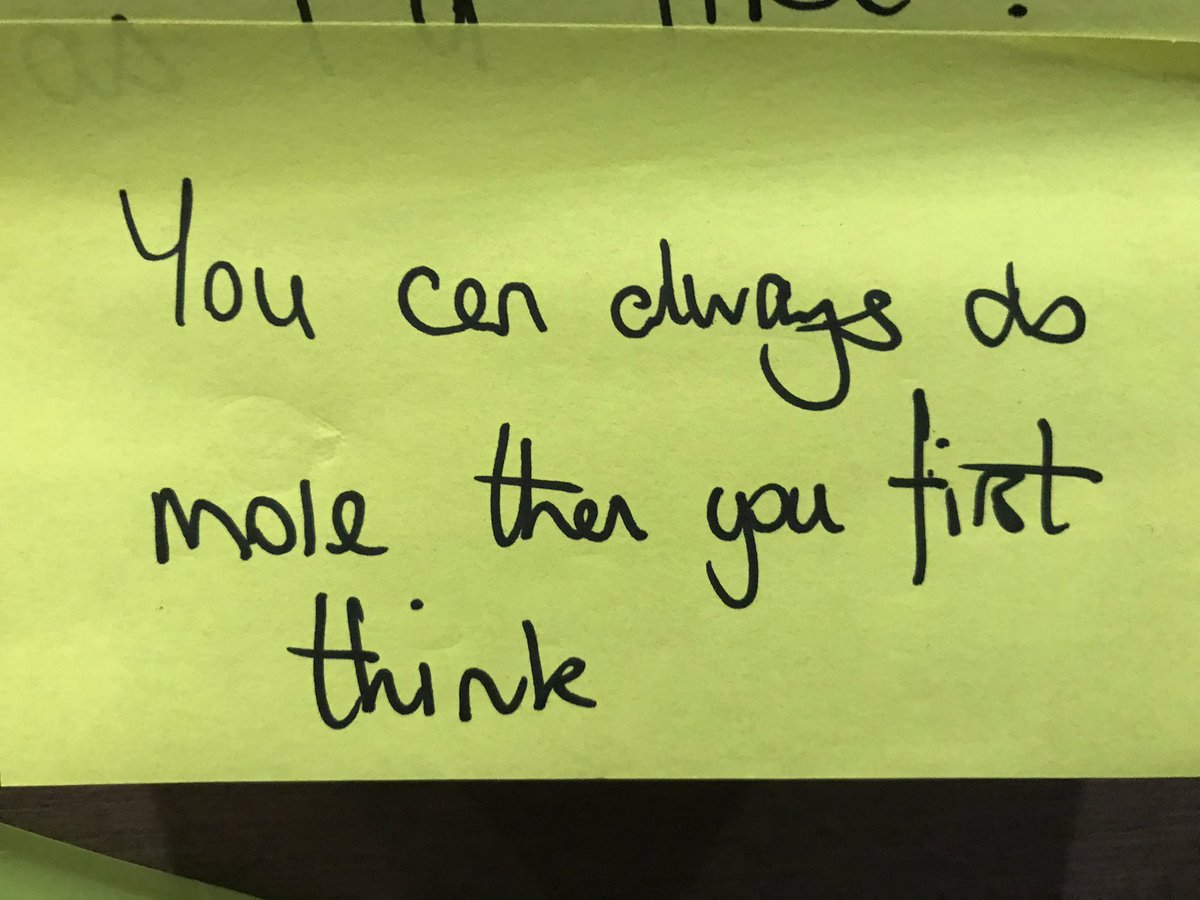 You can always do
more than you first
think